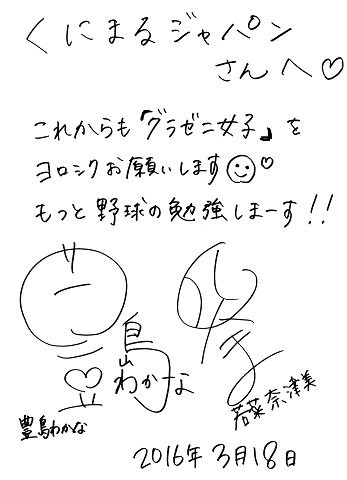 くにまるジャパン
さんへ♡
これからも「グラゼニ女子」を
ヨロシクお願いします☺♡
もっと野球の勉強しまーす!!
豊島わかな
豊島わかな
若菜奈津美
2016年3月18日